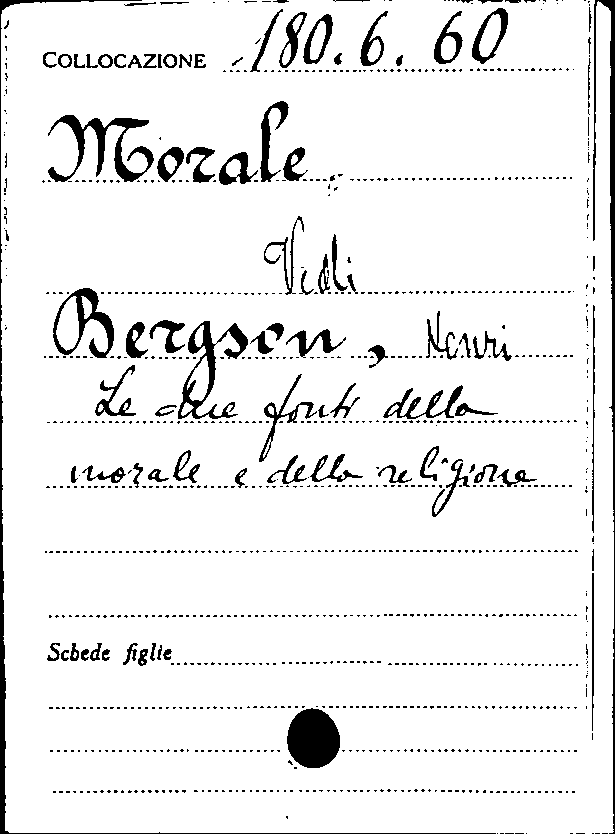 COLLOCAZIONE 180.6.60
Morale.
Vedi
Bergson, Henri
Le due fonti della
morale e della religione
Schede figlie